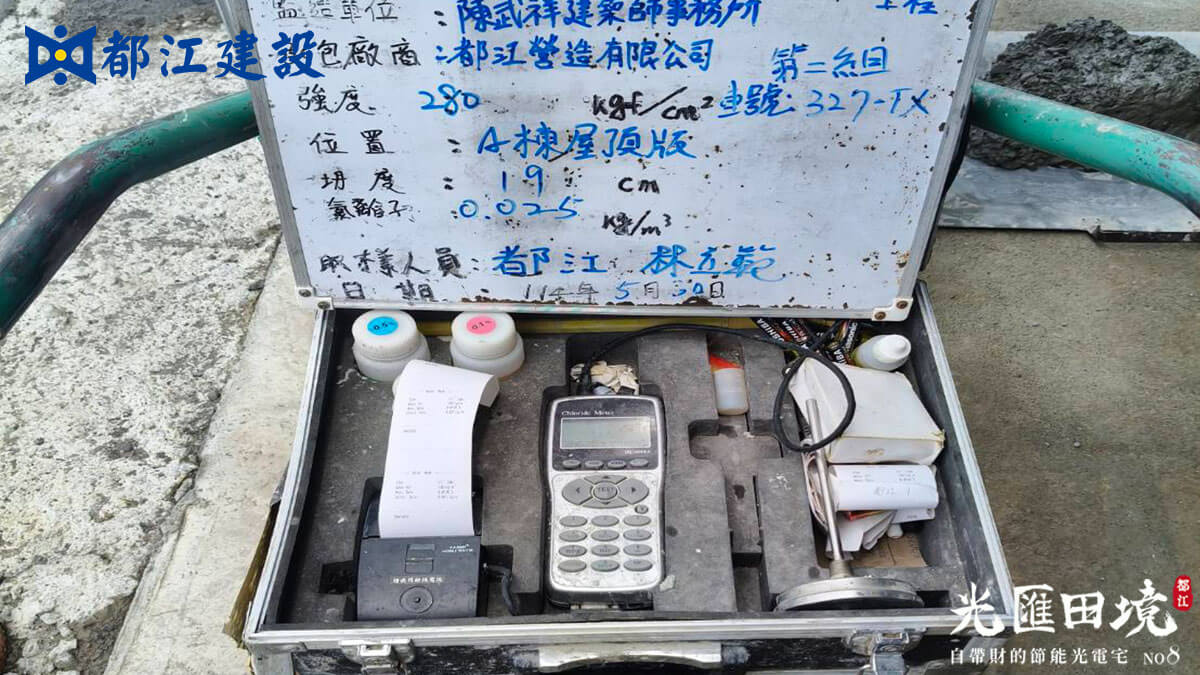 監造單位 : 陳武祥建築師事務所
工程
都江建設
包廠商 : 都江營造有限公司 第二組
強度 280 kgf/cm² 車號: 327-TX
位置 : A棟屋頂版
坍度 : 19 cm
氯離子 : 0.025 kg/m³
取樣人員 : 都江 林立範
日期 : 114年 5月 30日
0.5%
0.1%
Chloride Meter
TEST
光匯田境
都江
自帶財的節能光電宅 NO8